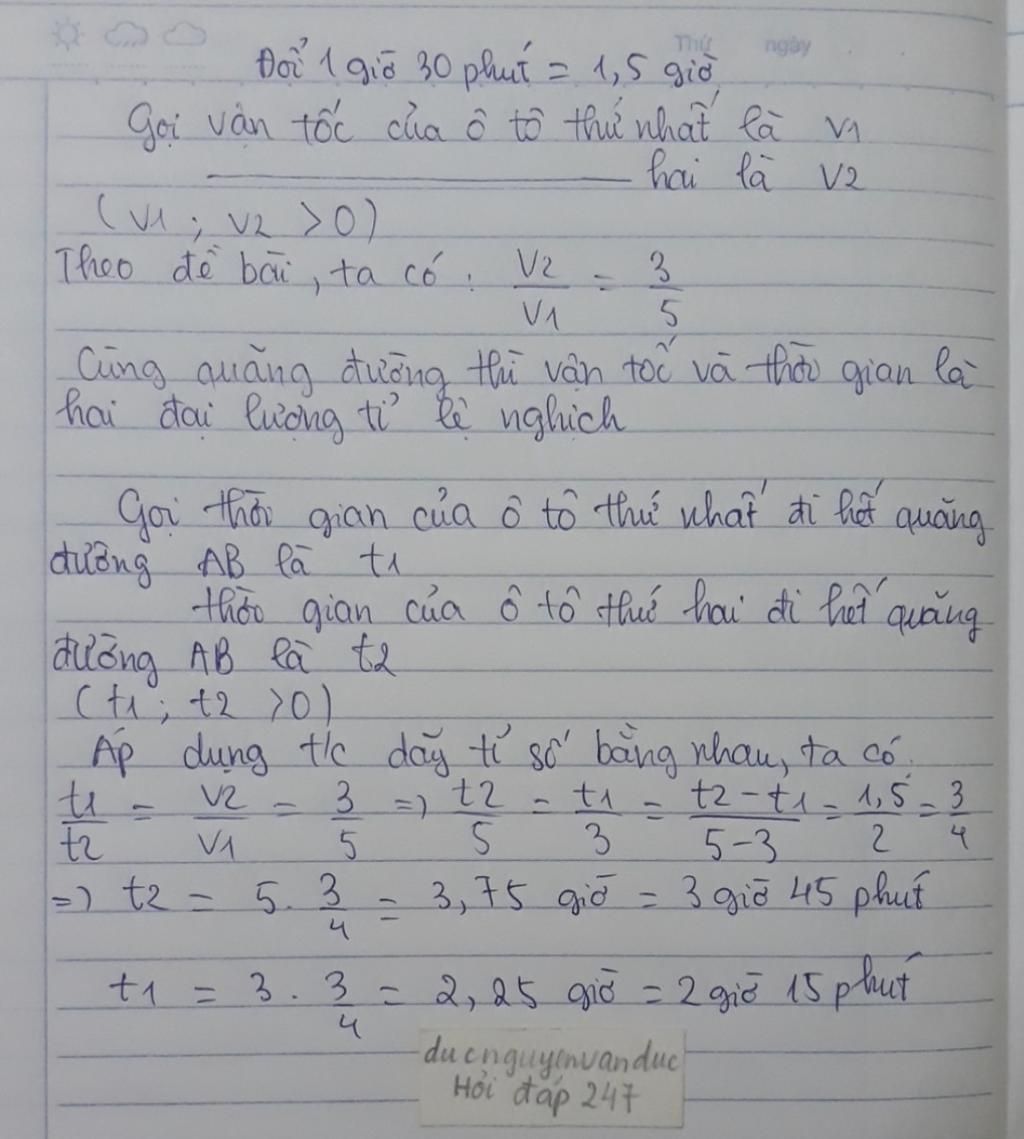 Thứ ngày
Đổi 1 giờ 30 phút = 1,5 giờ
Gọi vận tốc của ô tô thứ nhất là v1
——————— hai là v2
(v1 ; v2 > 0)
Theo đề bài, ta có : v2/v1 = 3/5
Cùng quãng đường thì vận tốc và thời gian là
hai đại lượng tỉ lệ nghịch
Gọi thời gian của ô tô thứ nhất đi hết quãng
đường AB là t1
thời gian của ô tô thứ hai đi hết quãng
đường AB là t2
(t1 ; t2 > 0)
Áp dụng t/c dãy tỉ số bằng nhau, ta có.
t1/t2 = v2/v1 = 3/5 => t2/5 = t1/3 = t2 - t1/5 - 3 = 1,5/2 = 3/4
=> t2 = 5 . 3/4 = 3,75 giờ = 3 giờ 45 phút
t1 = 3 . 3/4 = 2,25 giờ = 2 giờ 15 phút
ducnguyenvanduc
Hỏi đáp 247